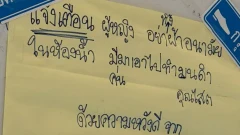 แจ้งเตือน ผู้หญิง อย่าทิ้งผ้าอนามัย
ในห้องน้ำ มีคนมาเอาไปทำมนต์ดำ
คุณไสย
ด้วยความหวังดี จาก